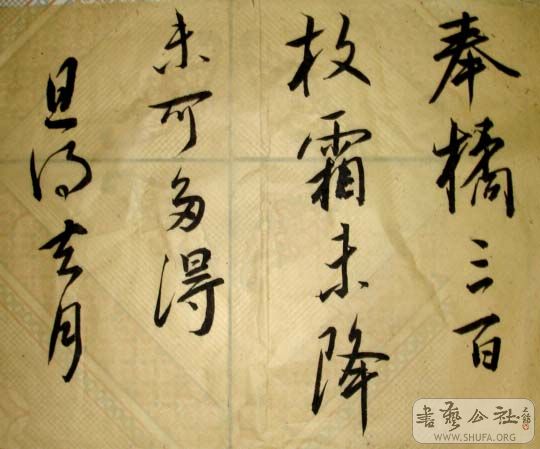 奉橘三百
枚霜未降
未可多得
旦得去月
書藝公社
WWW.SHUFA.ORG